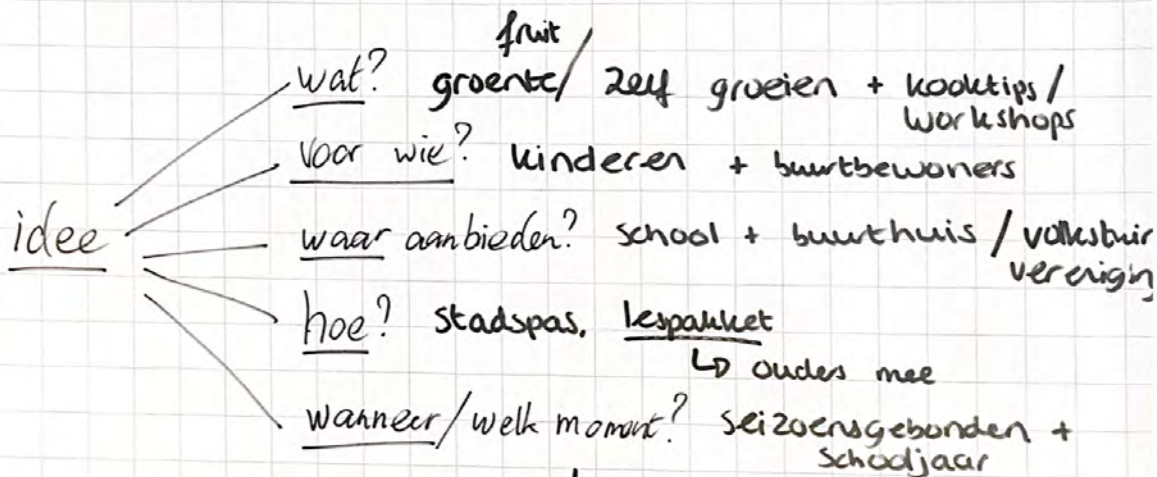 fruit
wat? groente/ zelf groeien + kooktips/
workshops
voor wie? kinderen + buurtbewoners
idee
waar aanbieden? school + buurthuis / volkstuin
verenigin
hoe? Stadspas, lespakket
↳ ouders mee
wanneer/welk moment? Seizoensgebonden +
schooljaar